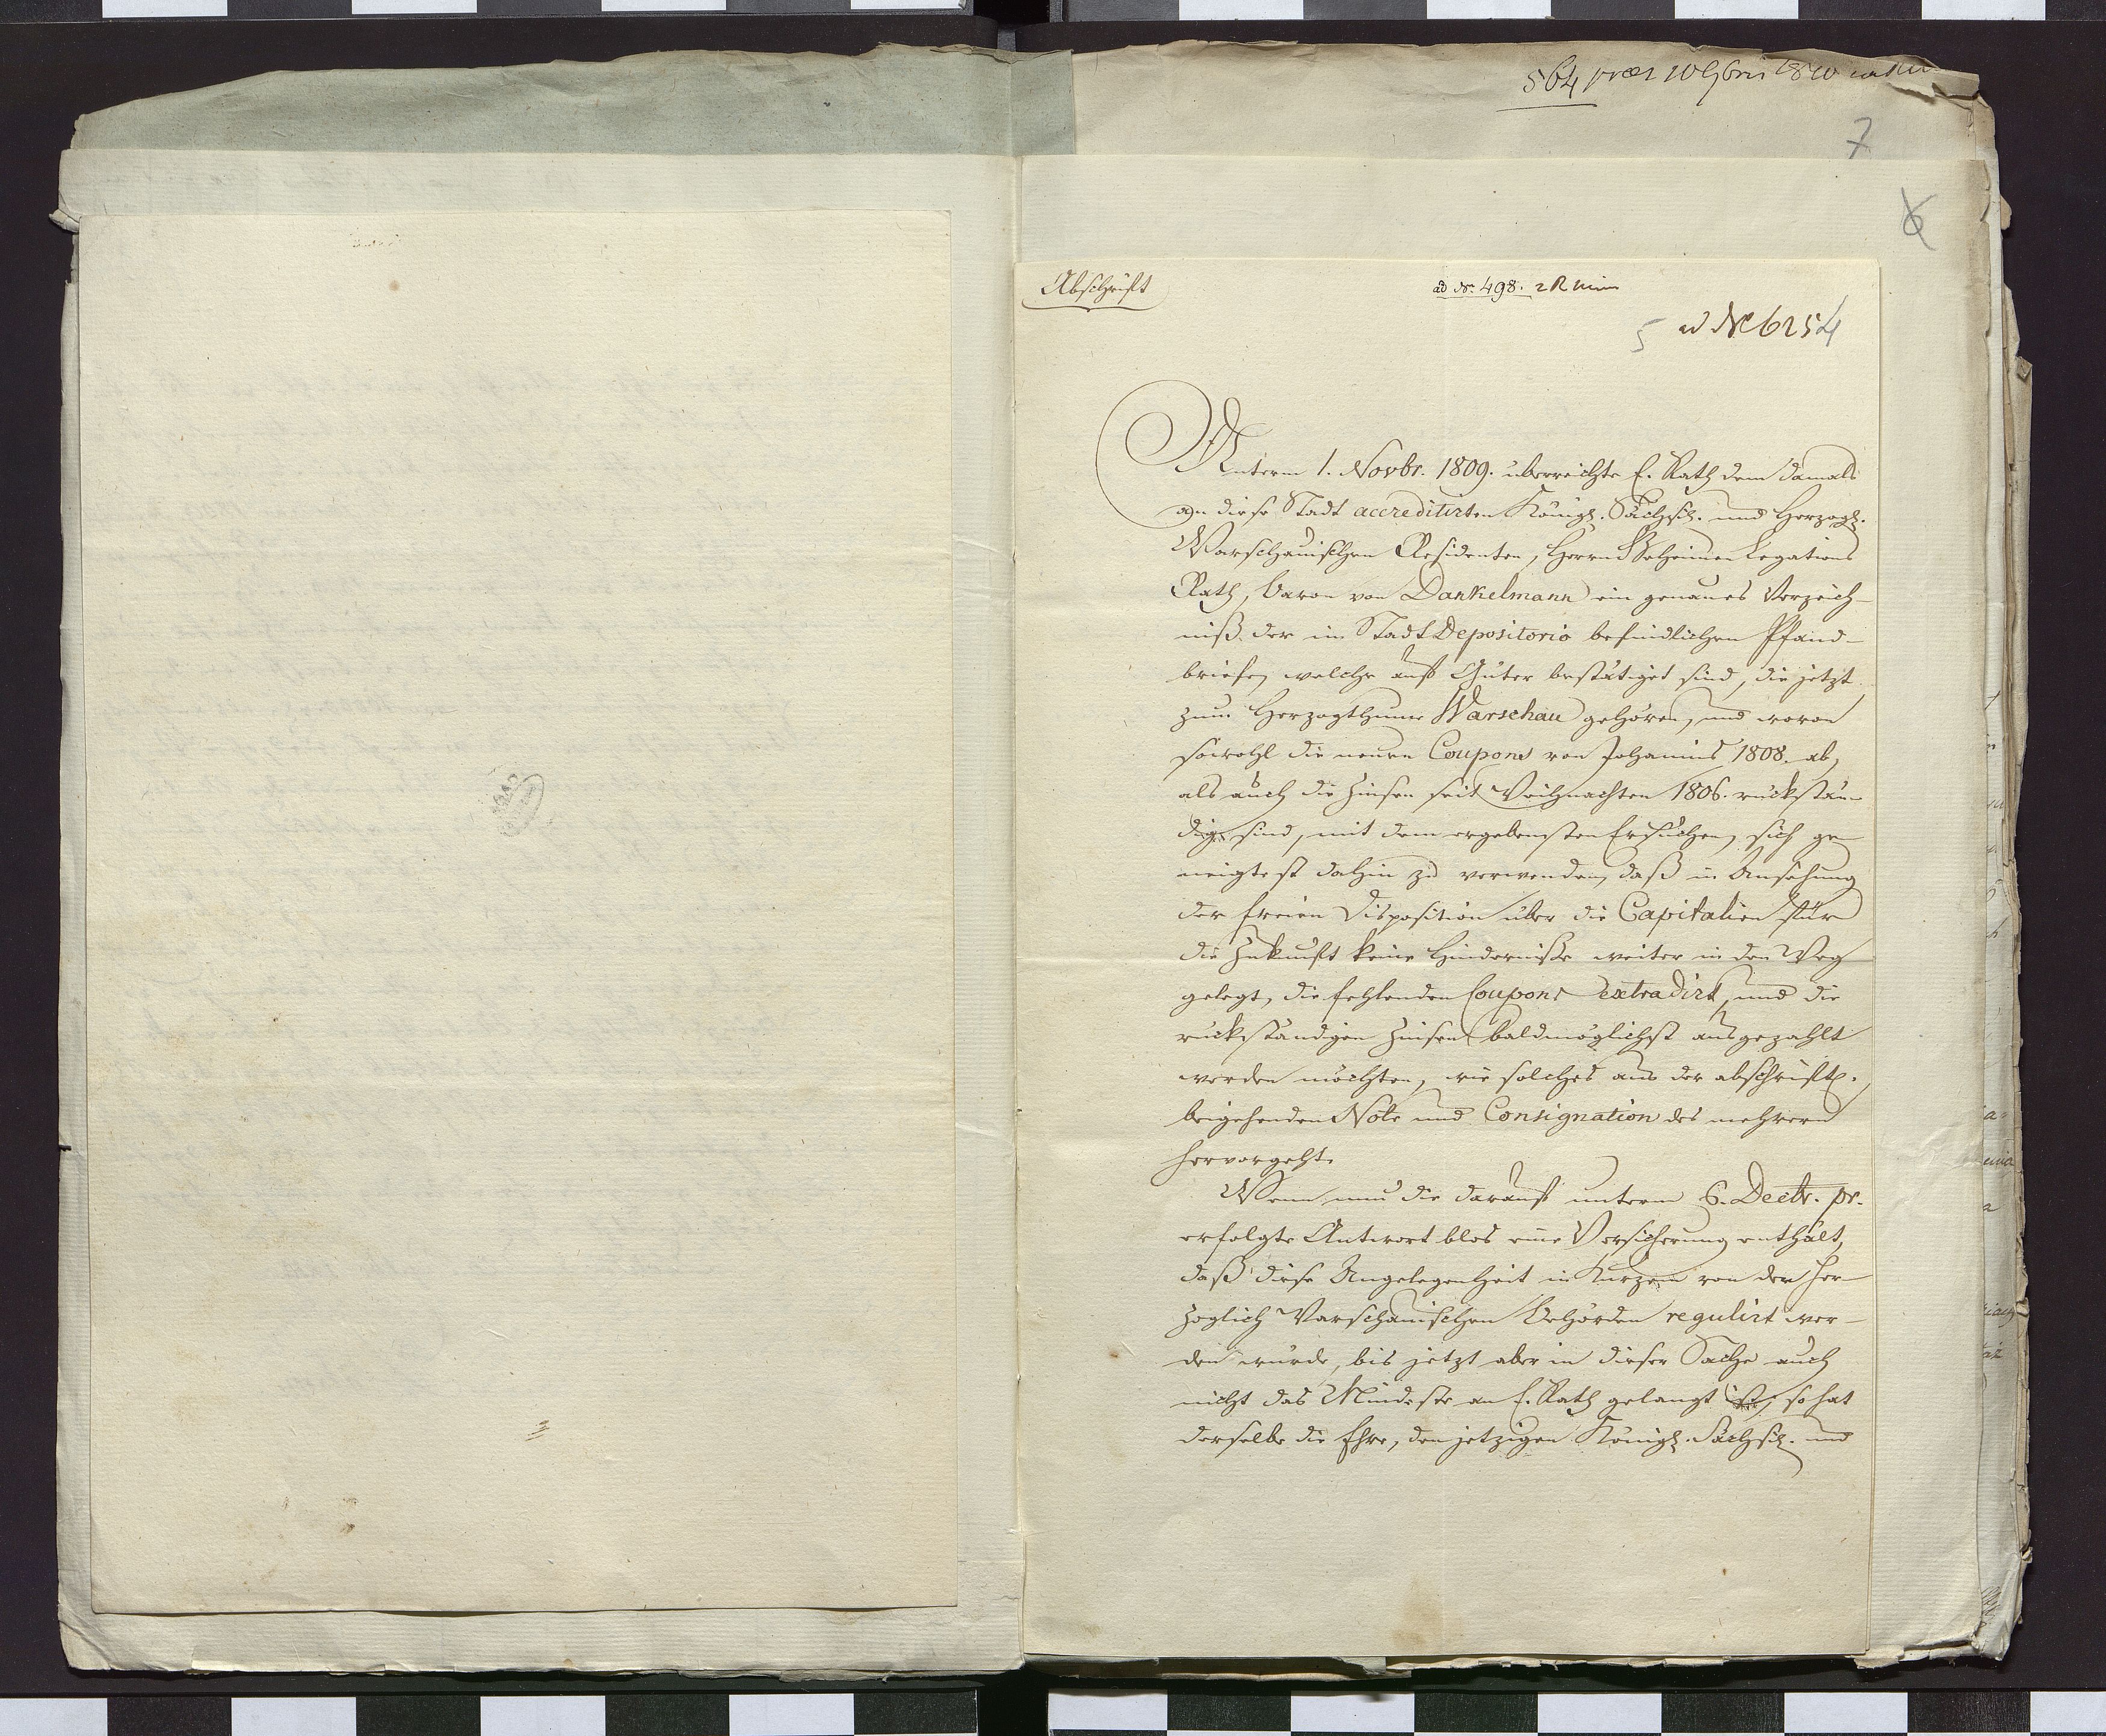 564 praes 10 9bris 1810
7
6
Abschrift
ad No. 498.
5 ad No 6254
Unterm 1. Novbr. 1809. überreichte E. Rath dem damals
an diese Stadt accreditirten Königl. Sächsch. und Herzogl.
Warschauischen Residenten, Herrn Geheimen Legations
Rath, Baron von Dankelmann ein genaues Verzeich-
niß der im Stadt Depositorio befindlichen Pfand-
briefe, welche auf Güter bestätiget sind, die jetzt
zum Herzogthume Warschau gehören, und wovon
sowohl die neuen Coupons von Johannis 1808. ab,
als auch die Zinsen seit Weihnachten 1806. rückstän-
dig sind, mit dem ergebensten Ersuchen, sich ge-
neigtest dahin zu verwenden, daß in Ansehung
der freien Disposition über die Capitalien für
die Zukunft keine Hindernisse weiter in den Weg
gelegt, die fehlenden Coupons extradirt, und die
rückständigen Zinsen baldmöglichst ausgezahlt
werden möchten, wie solches aus der abschriftl.
beigehenden Note und Consignation des mehrern
hervorgeht.
Wenn nun die darauf unterm 6. Decbr. pr.
erfolgte Antwort blos eine Versicherung enthält,
daß diese Angelegenheit in Kurzem von den Her-
zoglich Warschauischen Behörden regulirt wer-
den würde, bis jetzt aber in dieser Sache auch
nicht das Mindeste an E. Rath gelangt ist, so hat
derselbe die Ehre, den jetzigen Königl. Sächsch. und